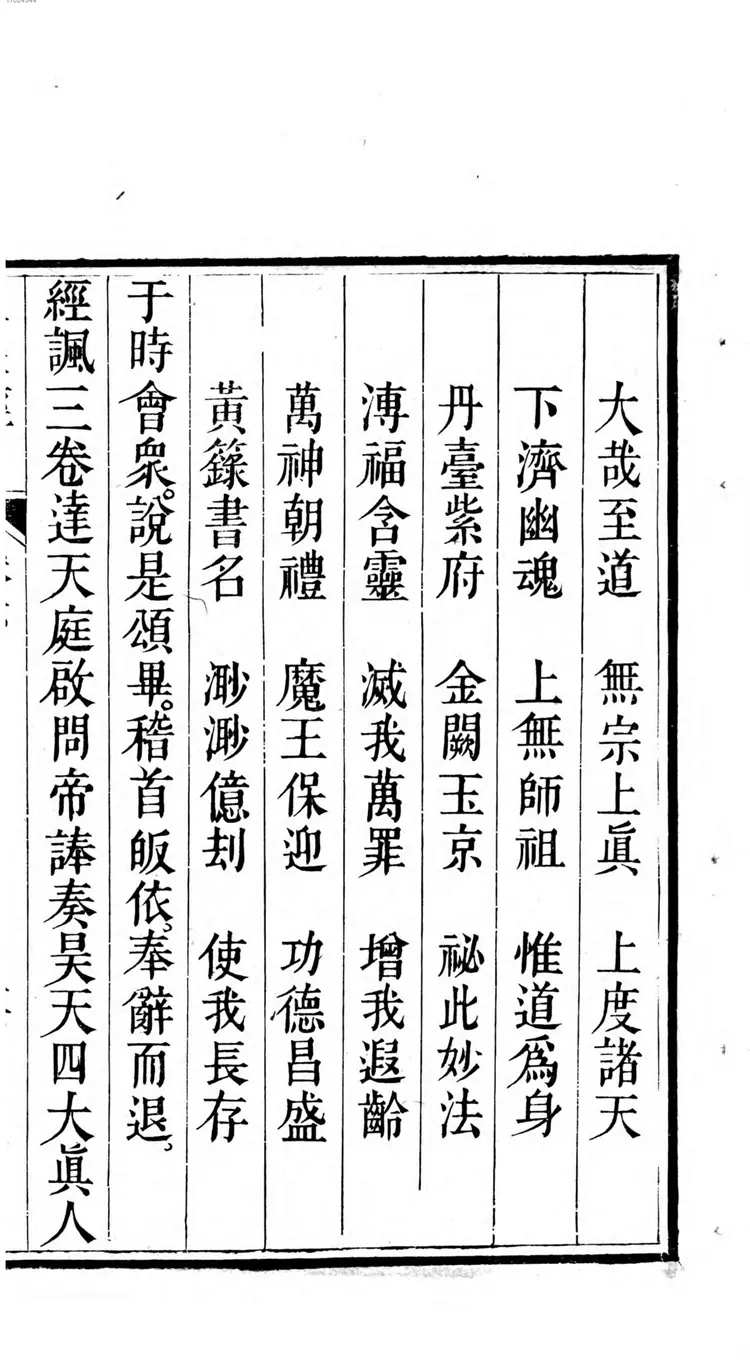 大哉至道　無宗上眞　上度諸天
下濟幽魂　上無師祖　惟道爲身
丹臺紫府　金闕玉京　祕此妙法
溥福含靈　滅我萬罪　增我遐齡
萬神朝禮　魔王保迎　功德昌盛
黃籙書名　渺渺億刦　使我長存
于時會衆。說是頌畢。稽首皈依。奉辭而退。
經諷三卷達天庭啟問帝諱奏昊天四大眞人